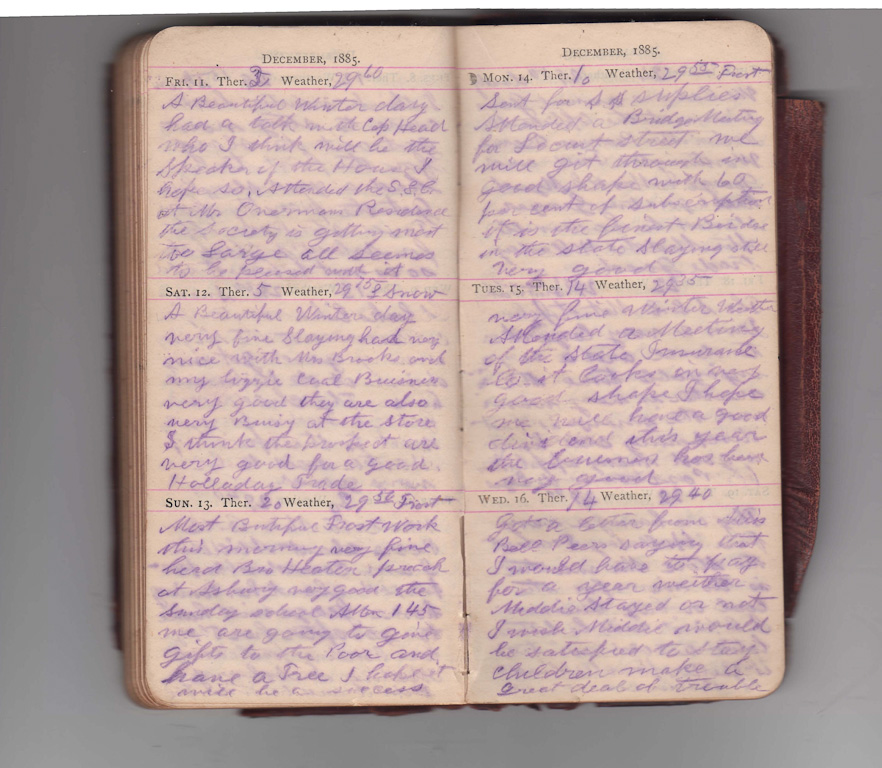 December, 1885.
Fri. 11. Ther. 3 Weather, 29 60
A Beautiful Winter day
had a talk with Cap Head
who I think will be the
Speaker of the House I
hope so. Attended the S.S.C.
at Mr Residence
the Society is getting most
too Large all seems
to be pleased with it
Sat. 12. Ther. 5 Weather, 29 Snow
A Beautiful Winter day
very fine Slaying had very
nice with Mrs Brooks and
my Lizzie Coal Buisness
very good they are also
very Buisy at the Store
I think the prospect are
very good for a good
Holladay Trade
Sun. 13. Ther. 20 Weather, 29 36 Frost
Most Butiful Frost Work
this morning very fine
heard Bro Heaten preach
at Asbury very good the
Sunday School Atten 145
we are going to give
Gifts to the Poor and
have a Tree I hope it
will be a success
December, 1885.
Mon. 14. Ther. 10 Weather, 29 55 Frost
Sent for S S Suplies
Attended a Bridge Meeting
for Locust Street we
will get through in
good shape with 60
per cent of subscription
it is the finest Bridge
in the State Slaying still
very good
Tues. 15. Ther. 14 Weather, 29 35
very fine Winter Weather
Attended a Meeting
of the State Insurance
Co. it Looks in very
good shape I hope
we will have a good
dividend this year
the Buisness has been
very good
Wed. 16. Ther. 14 Weather, 29 40
Got a letter from Miss
Bell Peers saying that
I would have to pay
for a year weither
Middie Stayed or not
I wish Middie would
be satisfied to stay
children make a
Great deal of trouble